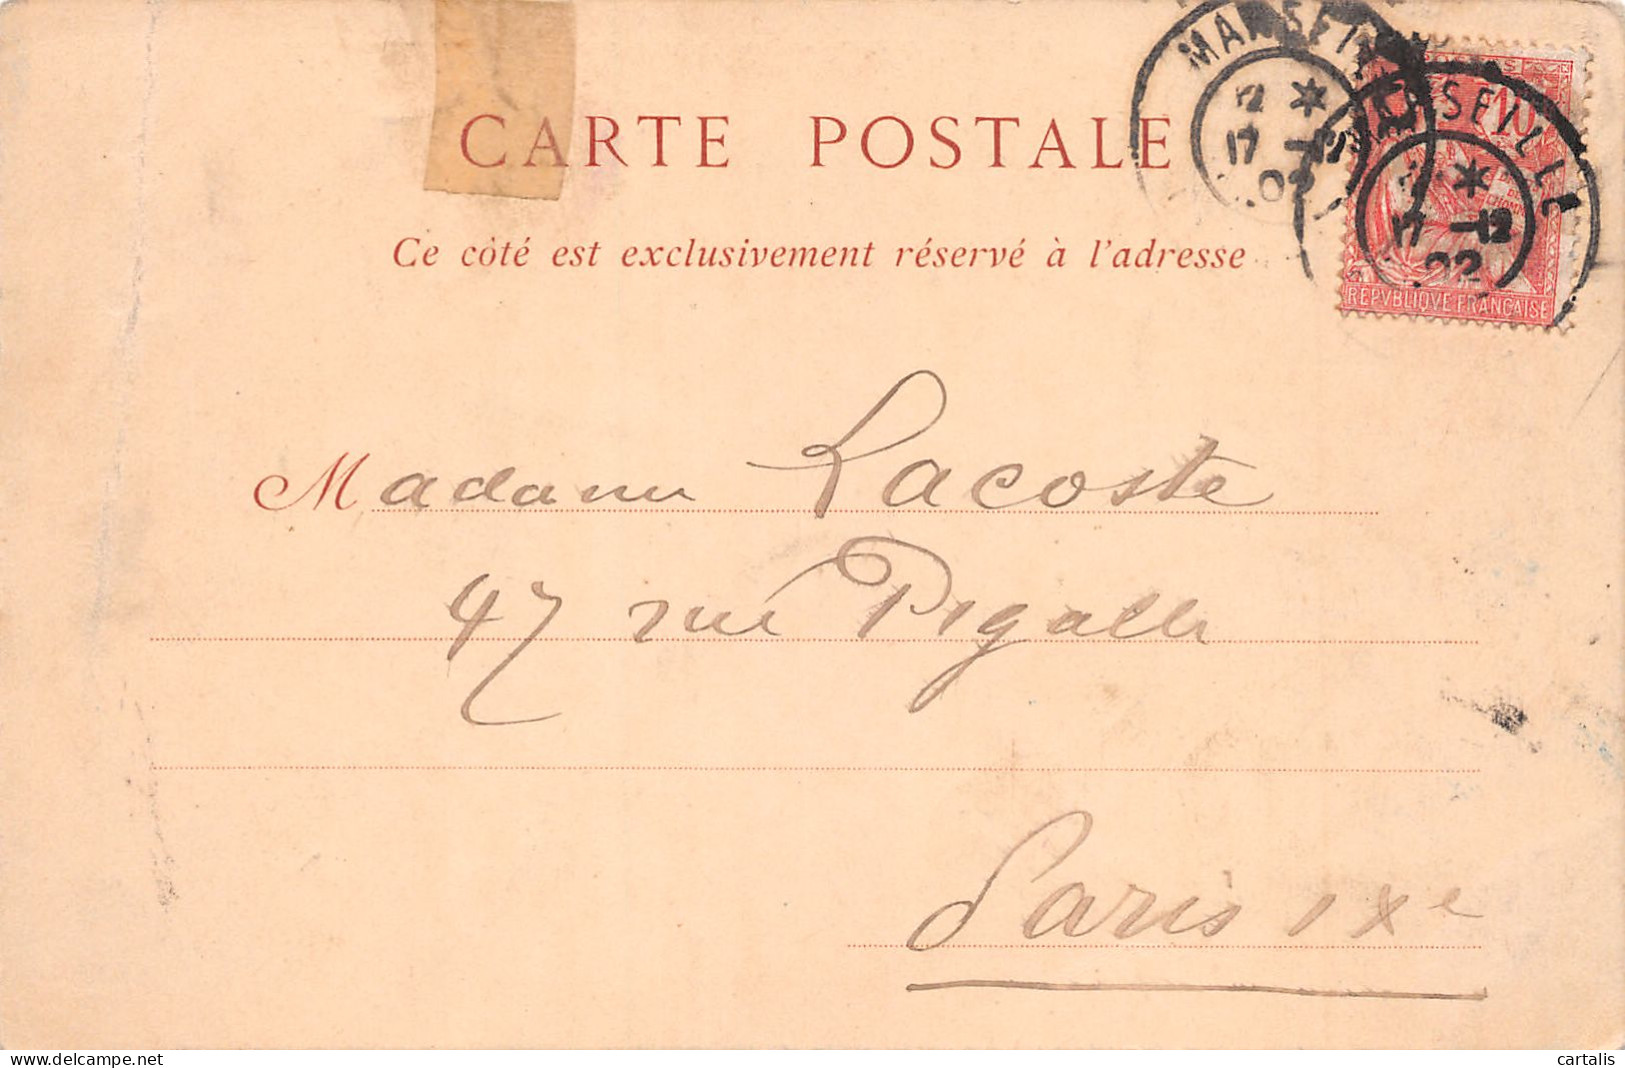 CARTE POSTALE
Ce côté est exclusivement réservé à l'adresse
MARSEILLE
17 -12
02
MARSEILLE
17 -12
02
10
REPVBLIQVE FRANÇAISE
Madame Lacoste
47 rue Pigalle
Paris IXe
delcampe.net
cartalis